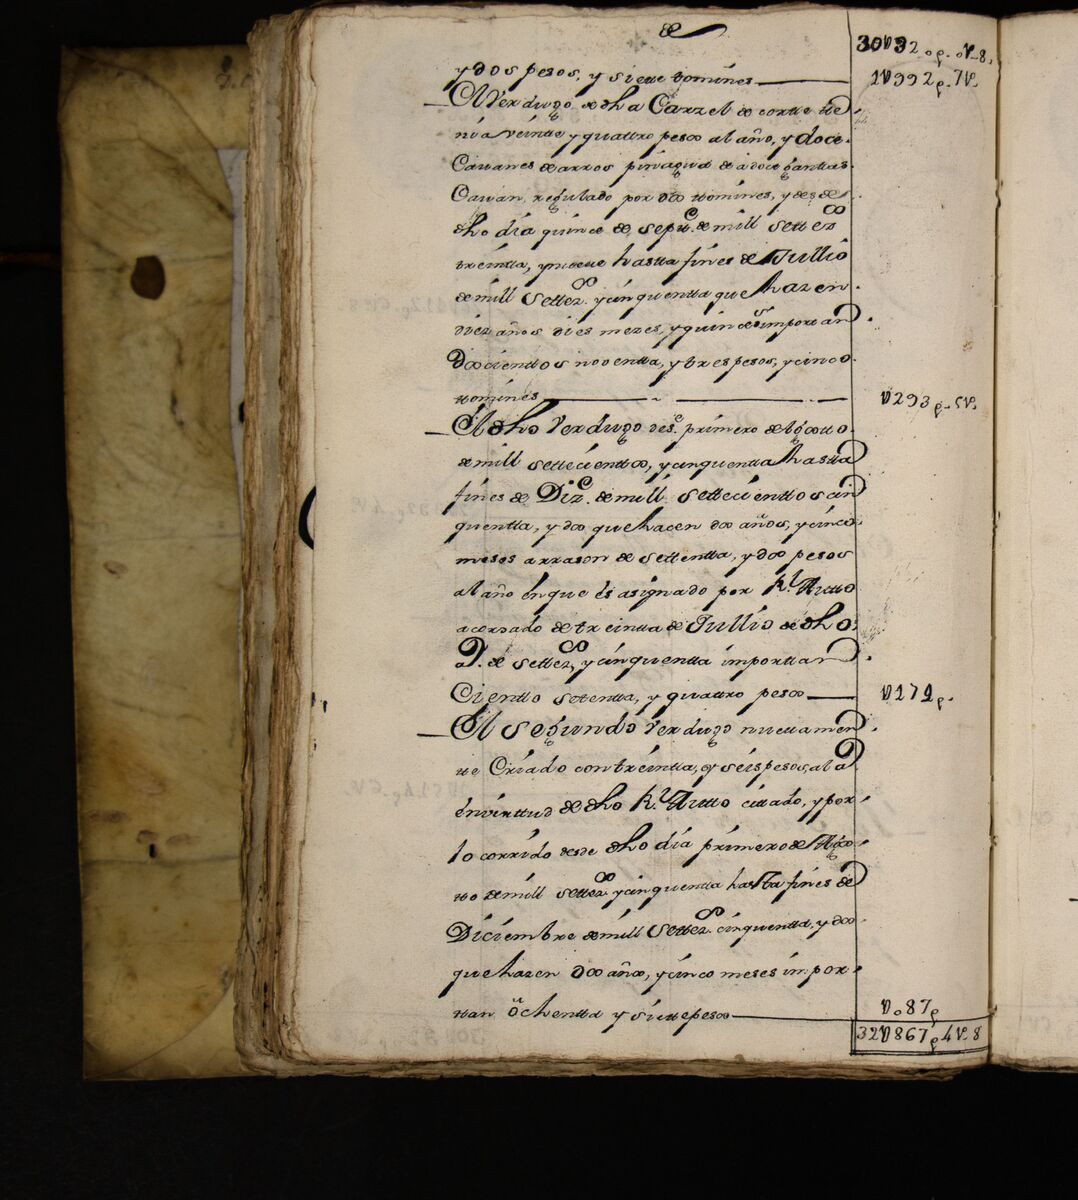 30V32 p. oV-8.
y dos pesos, y siette tomines — 1V992 p. 7V.
El Verdugo de dha Carzel de cortte tte
nia veintte y quattro pesos al año, y doce
Cavanes de arros pinagua de a doce gantas
Cavan regulado por dos ttomines, y desde
dho dia quince de Sepre. de mill settezos
treintta, y nueve hastta fines de Jullio
de mill Settezos. y cinquentta que hazen
diez años dies mezes, y quinse dias importtan
Doscienttos noventta, y tres pesos, y cinco
ttomines — V293 p. 5V.
Al dho Verdugo desde primero de Agostto
de mill settecienttos, y cinquentta hastta
fines de Dize. de mill settecienttos cin
quentta, y dos que hacen dos años, y cinco
meses a rrason de settentta, y dos pesos
al año en que es asignado por Rl. Autto
acordado de treintta de Jullio de dho
a. de settezos y cinquentta importtan
Cientto setentta, y quattro pesos — V174 p.
Al segundo Verdugo nuevamen
tte Criado con treintta, y seis pesos, al a
en virttud de dho Rl. Autto cittado, y por
lo corrido desde dho dia primero de Agos
tto de mill settezos. y cinquentta hasta fines de
Diciembre de mill Settezos. cinquentta, y dos
que hazen dos años, y cinco meses impor
ttan ochentta y siette pesos — V.087 p
32V867 p 4V-8